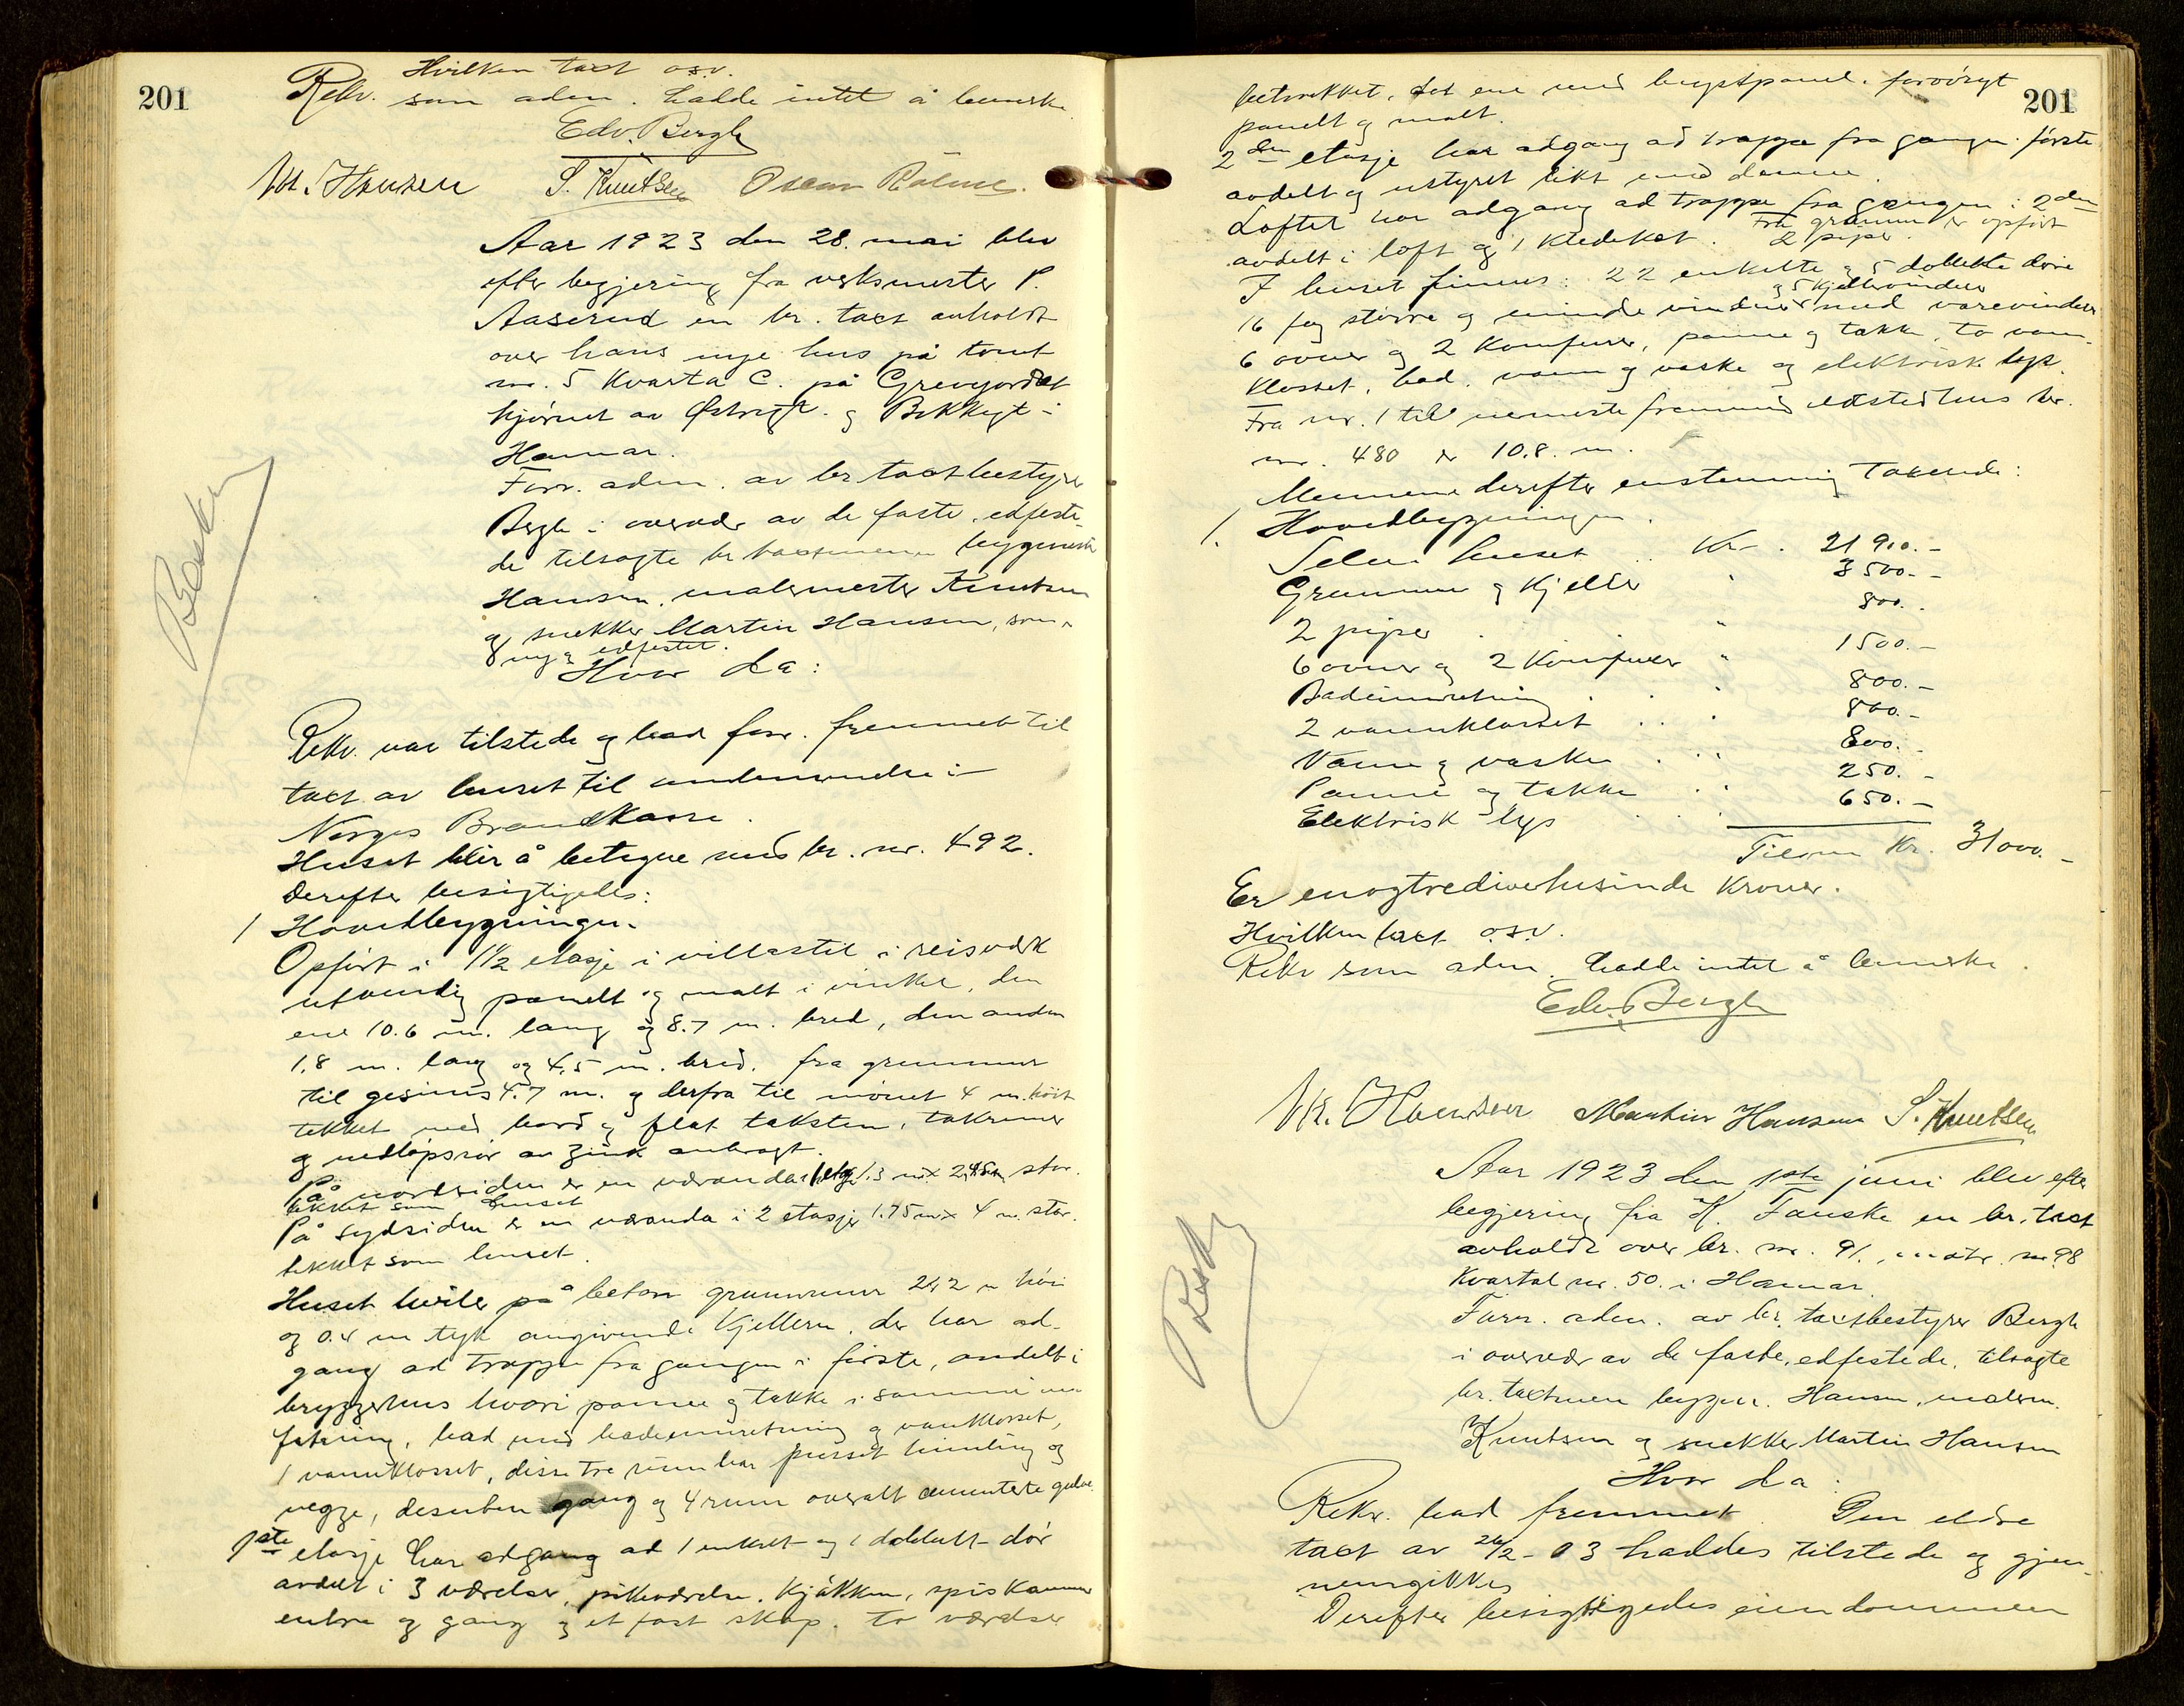 201
Hvilken taxt osv.
Rekv. som aden. hadde intet å bemerke
Edv. Bergh
M. Hansen S. Knutsen Oscar
Aar 1923 den 28. mai blev
efter begjering fra verksmester P.
Aaserud en br. taxt avholdt
over hans nye hus på tomt
nr. 5 Kvarta C. på Grevjordet
hjørnet av Østregt. og Bekkegt i
Hamar.
Forr. adm. av br. taxtbestyrer
Bergh i overvær av de faste, edfeste-
de tilsagte br. taxtmenn bygmester
Hansen, malermester Knutsen
og snekker Martin Hansen, som
edfestet.
Hvor da:
Besk
Rekv. var tilstede og bad forr. fremmet til
taxt av huset til
Norges Brandkasse.
Huset blir å betegne med br. nr. 492.
Derefter besigtigedes:
1 Hovedbygningen.
Opført i 1 1/2 etasje i villastil i reisverk
utvendig panelt og malt i vinkel, den
ene 10.6 m. lang og 8.7 m. bred, den anden
1.8 m. lang og 4.5 m. bred. fra grunnmur
til gesims 4.7 m. og derfra til mønet 4 m. høit
tekket med bord og flat taksten, takrenner
og nedløpsrør av zink anbragt.
På nordsiden er en veranda 1.3 m x 2.45 m stor.
tekket som huset
På sydsiden er en veranda i 2 etasjer 1.75 m x 4 m. stor.
tekket som huset.
Huset hviler på beton grunnmur 2,2 m høi
og 0.4 m tyk omgivende kjelleren, der har ad-
gang ad trappe fra gangen i første, avdelt i
bryggerhus hvori panne og takke i samme inn
fatning, bad med badeinnretning og vannklosset,
1 vannklosset, disse tre rum har pusset himling og
vegge, desuten gang og 4 rum overalt cementerte gulve.
1ste etasje har adgang ad 1 enkelt og 1 dobbelt dør
avdelt i 3 værelser, pikeværelse, kjøkken, spiskammer
entre og gang og et fast skap. to værelser
201
betrekket, det ene med brystpanel. forøvrigt
panelt og malt.
2den etasje har adgang ad trappe fra gangen i første
avdelt og utstyret likt med denne.
Loftet har adgang ad trappe fra gangen i 2den
avdelt i loft og 1 kledekot. Fra grunnen er opført
2 piper.
I huset finnes: 22 enkelte og 5 dobbelte døre
16 fag større og mindre vinduer og 5 kjellervinduer med varevinduer
6 ovner og 2 komfurer, panne og takke, to vann-
klosset, bad, vann og vaske og elektrisk lys.
Fra nr. 1 til nermeste fremmed ildstedshus br.
nr. 480 er 10.8. m.
Mennene derefter enstemmig Taxerede:
1. Hovedbygningen.
Selve huset .. Kr. 21 900.-
Grunnmur og kjeller " 3500.-
2 piper " 800.-
6 ovner og 2 Komfurer " 1500.-
Badeinnretning " 800.-
2 vannklosset " 800.-
Vann og vaske " 800.-
Panne og takke " 250.-
Elektrisk lys 650.-
Tilsam Kr. 31000.-
Er enogtredivetusinde Kroner.
Hvilken taxt osv.
Rekv som aden. hadde intet å bemerke.
Edv. Bergh
M. Hansen Martin Hansen S. Knutsen
Aar 1923 den 1ste juni blev efter
begjering fra K. Fauske en br. taxt
avholdt over br. nr. 91, matr. nr 98
Kvartal nr. 50. i Hamar.
Forr. aden. av br. taxtbestyrer Bergh
i overvær av de faste, edfestede, tilsagte
br. taxtmenn byggm. Hansen, malerm.
Knutsen og snekker Martin Hansen
Hvor da:
Besk
Rekv. bad fremmet. Den eldre
taxt av 26/2-03 haddes tilstede og gjen-
nemgikkes
Derefter besigtigedes eiendommen